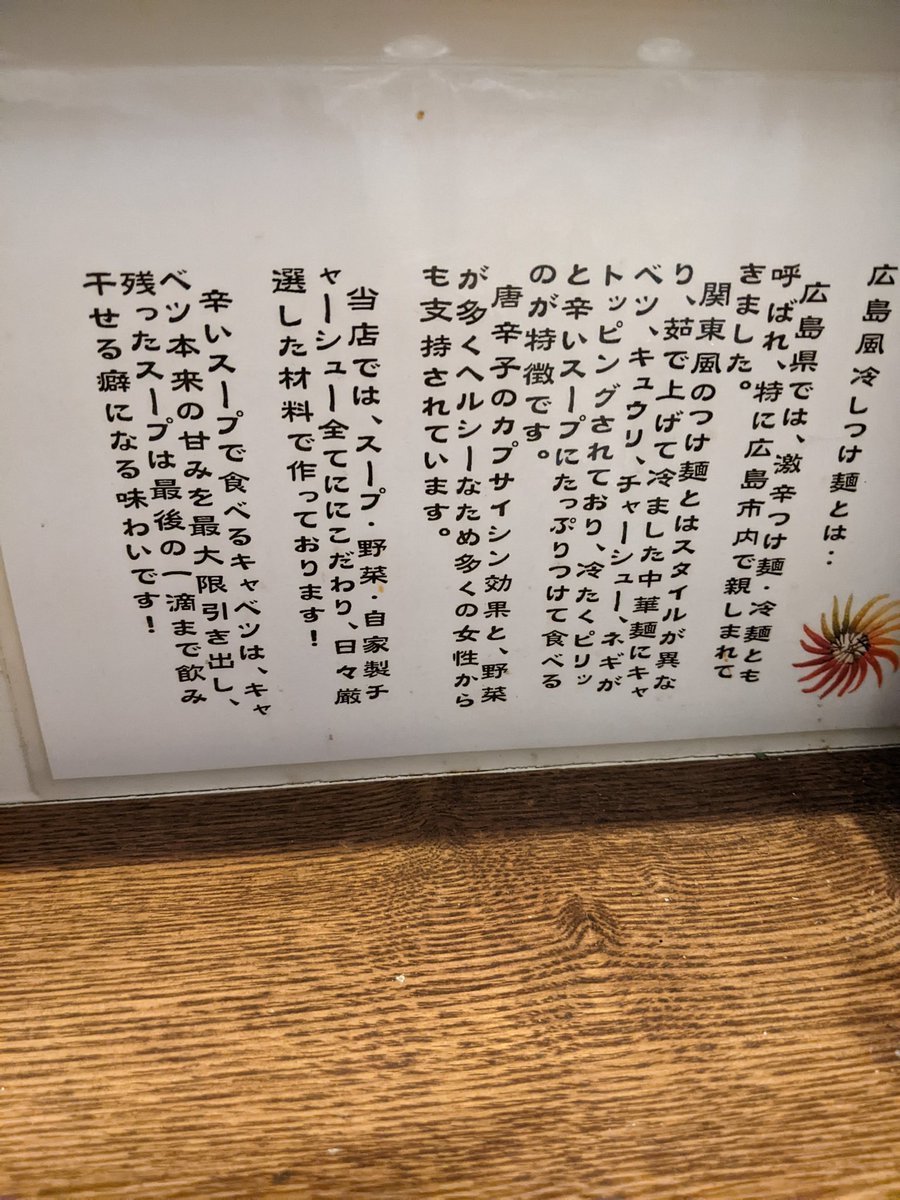 広島風冷しつけ麺とは‥
広島県では、激辛つけ麺・冷麺とも
呼ばれ、特に広島市内で親しまれて
きました。
関東風のつけ麺とはスタイルが異な
り、茹で上げて冷ました中華麺にキャ
ベツ、キュウリ、チャーシュー、ネギが
トッピングされており、冷たくピリッ
と辛いスープにたっぷりつけて食べる
のが特徴です。
唐辛子のカプサイシン効果と、野菜
が多くヘルシーなため多くの女性から
も支持されています。
当店では、スープ・野菜・自家製チ
ャーシュー全てにこだわり、日々厳
選した材料で作っております！
辛いスープで食べるキャベツは、キャ
ベツ本来の甘みを最大限引き出し、
残ったスープは最後の一滴まで飲み
干せる癖になる味わいです！